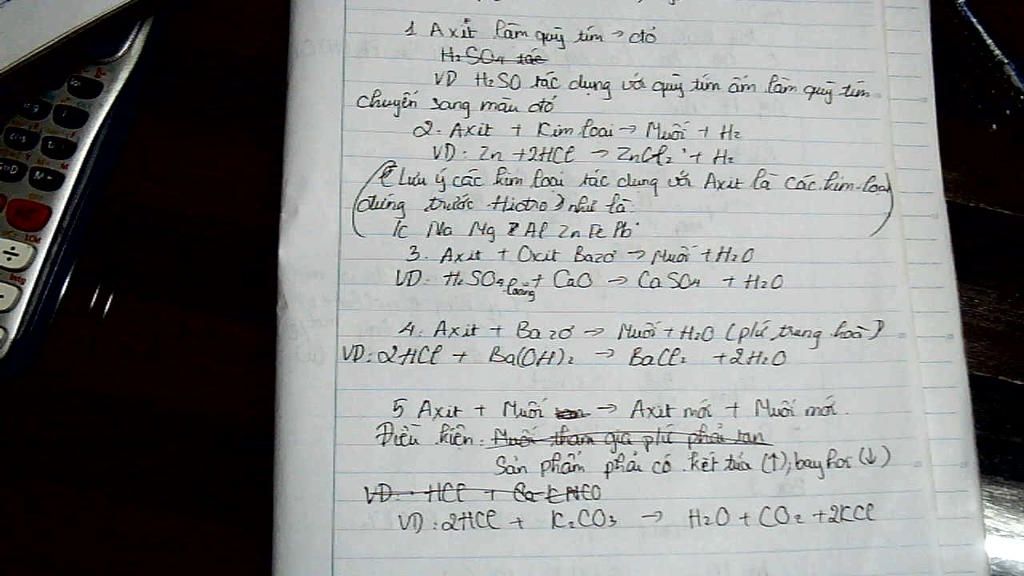 1 Axit làm quỳ tím → đỏ
H₂SO₄ tác
VD H₂SO tác dụng với quỳ tím ẩm làm quỳ tím
chuyển sang màu đỏ
2. Axit + Kim loại → Muối + H₂
VD: Zn + 2HCl → ZnCl₂ + H₂
(Lưu ý các kim loại tác dụng với Axit là các kim loại
đứng trước Hiđro) như là:
K Na Mg Al Zn Fe Pb
3. Axit + Oxit Bazơ → Muối + H₂O
VD: H₂SO₄ loãng + CaO → CaSO₄ + H₂O
4. Axit + Bazơ → Muối + H₂O (pứ trung hoà)
VD: 2HCl + Ba(OH)₂ → BaCl₂ + 2H₂O
5 Axit + Muối → Axit mới + Muối mới.
Điều kiện: Muối tham gia pứ phải tan
Sản phẩm phải có kết tủa (↑), bay hơi (↓)
VD: HCl +
VD: 2HCl + K₂CO₃ → H₂O + CO₂ + 2KCl